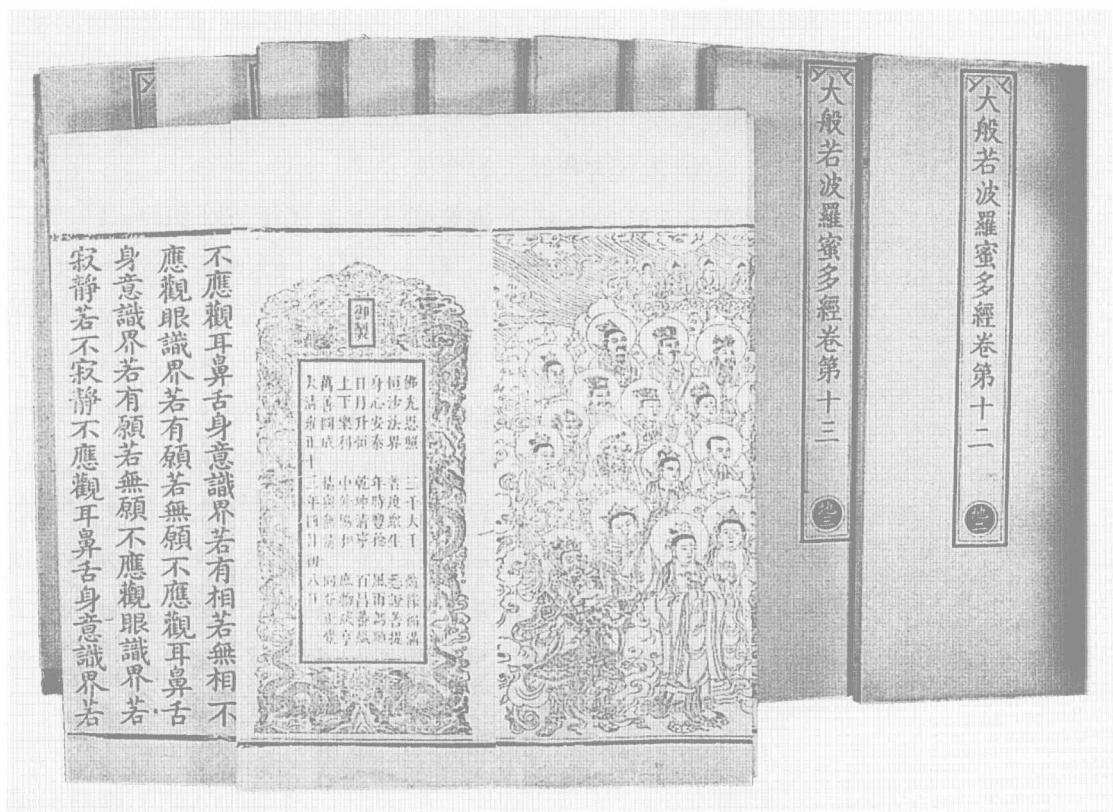 大般若波羅蜜多經卷第十二
地二
大般若波羅蜜多經卷第十三
地三
御製
佛光恩照 三千大千
恒沙法界 普度眾生 悉證菩提
身心安泰 年時豐稔 風雨
日月升恒 乾坤清寧 百昌蕃熾
上下樂利 中外協和 庶物咸亨
萬善圓成 同登正覺
大清雍正十三年四月初八日
不應觀耳鼻舌身意識界若有相若無相不
應觀眼識界若有願若無願不應觀耳鼻舌
身意識界若有願若無願不應觀眼識界若
寂靜若不寂靜不應觀耳鼻舌身意識界若